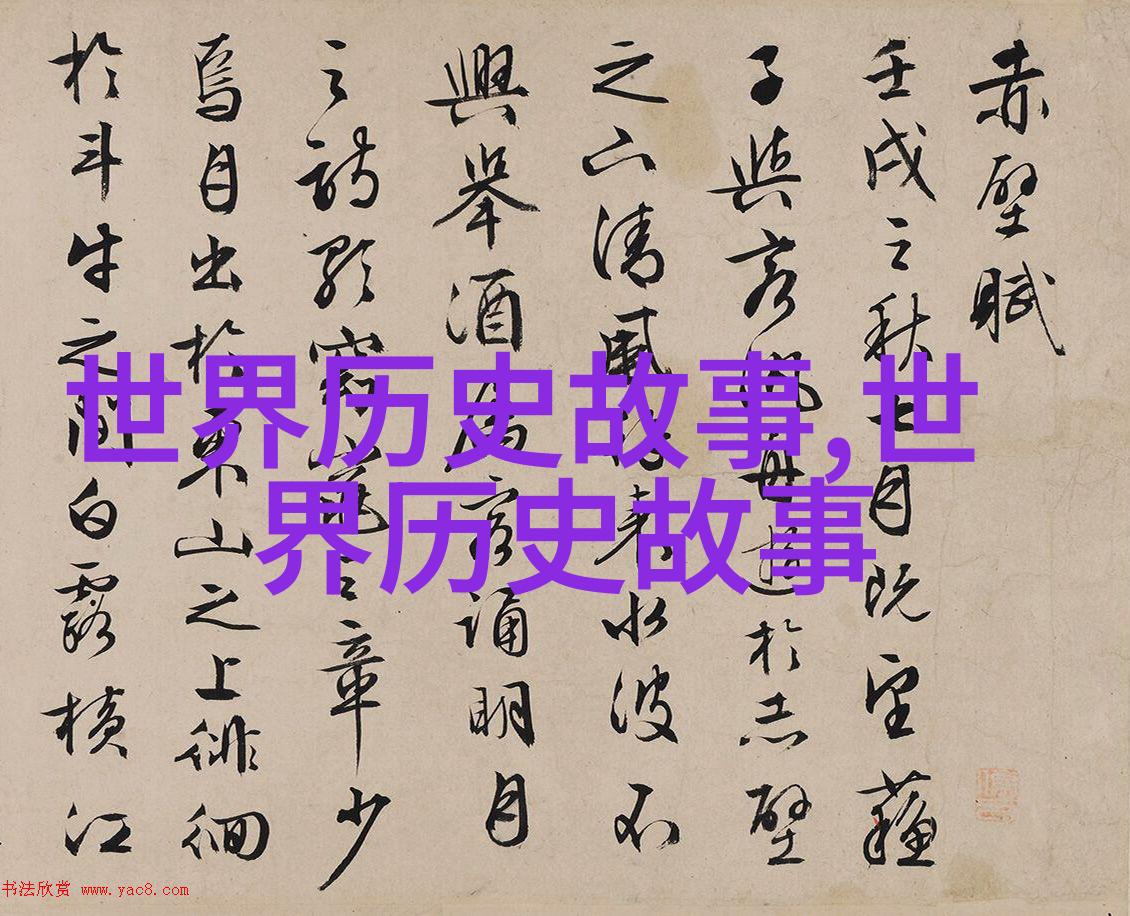 赤壁賦
壬戌之秋七月既望蘓
子與客汎舟遊於赤壁
之下清風徐来水波不
興舉酒屬客誦明月
之詩歌窈窕之章少
焉月出於東山之上徘徊
於斗牛之間白露横江
世界历史故事,世
界历史故事
书法欣赏 www.yac8.com